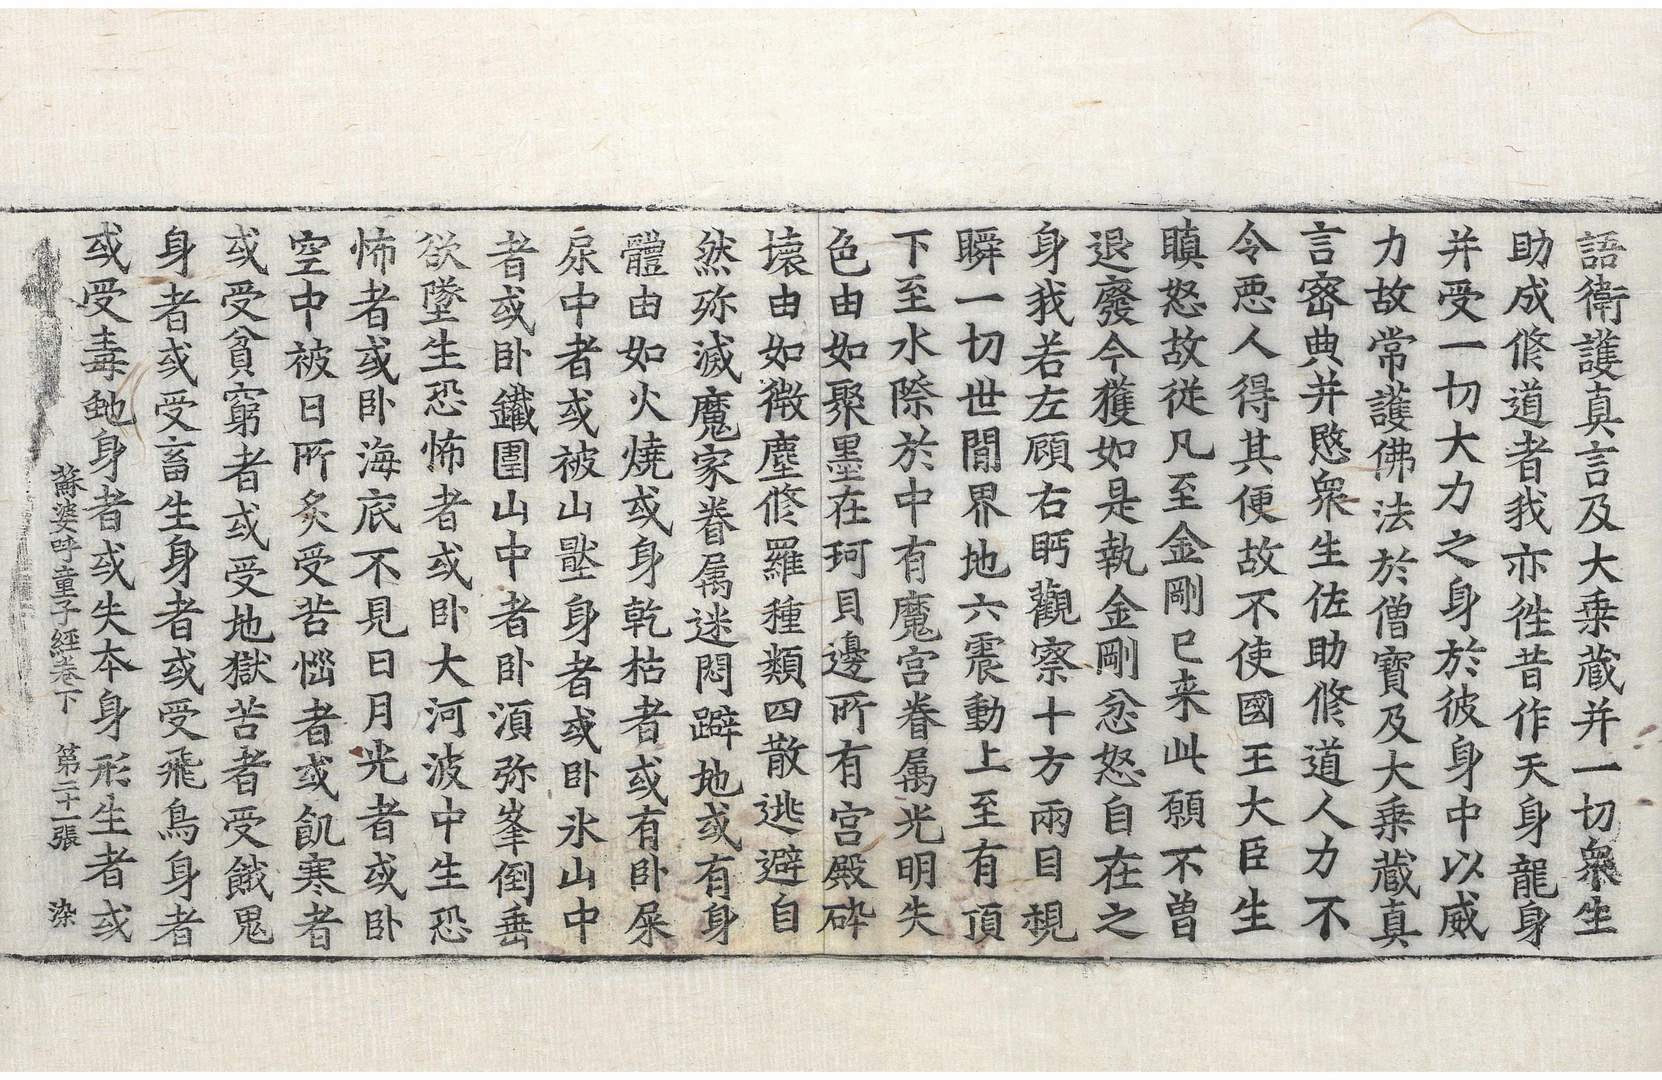 語衛護真言及大乗蔵并一切衆生
助成修道者我亦徃昔作天身龍身
并受一切大力之身於彼身中以威
力故常護佛法於僧寶及大乗蔵真
言宻典并愍衆生佐助修道人力不
令悪人得其便故不使國王大臣生
瞋怒故従凡至金剛已来此願不曽
退廢今獲如是執金剛忿怒自在之
身我若左顧右眄觀察十方兩目視
瞬一切世間界地六震動上至有頂
下至水際於中有魔宫眷属光明失
色由如聚墨在珂貝邊所有宫殿碎
壊由如微塵修羅種類四散逃避自
然弥滅魔家眷属迷悶躃地或有身
體由如火燒或身乾枯者或有卧屎
尿中者或被山壓身者或卧氷山中
者或卧鐵圍山中者卧湏弥峯倒垂
欲墜生恐怖者或卧大河波中生恐
怖者或卧海底不見日月光者或卧
空中被日所炙受苦惱者或飢寒者
或受貧窮者或受地獄苦者受餓鬼
身者或受畜生身者或受飛鳥身者
或受毒虵身者或失本身形生者或
蘇婆呼童子經卷下　第二十一張　染